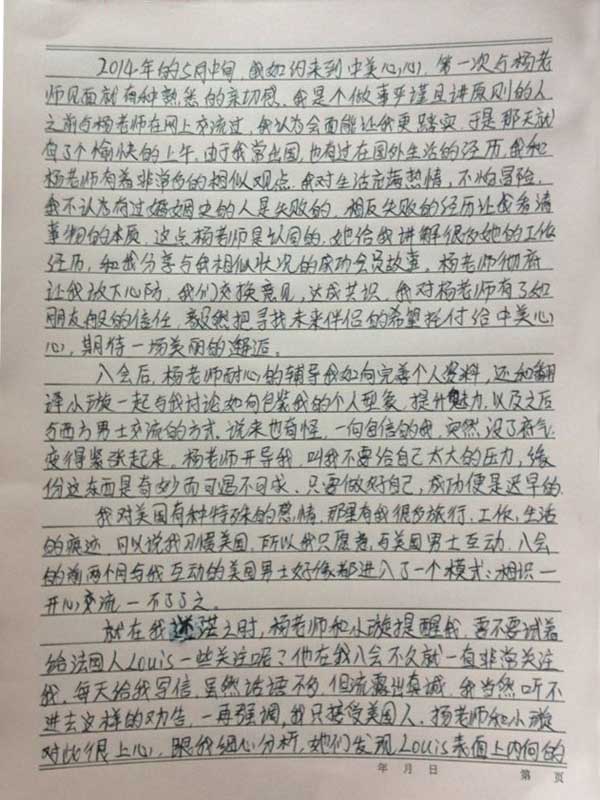 2014年的5月中旬，我如约来到中美心心，第一次与杨老
师见面就有种熟悉的亲切感，我是个做事严谨且讲原则的人
之前与杨老师在网上交流过，我认为会面能让我更踏实，于是那天就
有了个愉快的上午。由于我常出国，也有过在国外生活的经历，我和
杨老师有着非常多的相似观点。我对生活充满热情，不怕冒险，
我不认为有过婚姻史的人是失败的，相反失败的经历让我看清
事物的本质，这点杨老师是认同的，她给我讲解很多她的工作
经历，和我分享与我相似状况的成功会员故事。杨老师彻底
让我放下心防，我们交换意见，达成共识，我对杨老师有了如
朋友般的信任，毅然把寻找未来伴侣的希望托付给中美心
心，期待一场美丽的邂逅。
入会后，杨老师耐心的辅导我如何完善个人资料，还和翻
译小璇一起与我讨论如何包装我的个人形象，提升魅力，以及之后
与西方男士交流的方式。说来也有怪，一向自信的我，突然没了底气，
变得紧张起来。杨老师开导我，叫我不要给自己太大的压力，缘
份这东西是奇妙而可遇不可求，只要做好自己，成功便是迟早的
我对美国有种特殊的感情，那里有我很多旅行，工作，生活
的痕迹，可以说我习惯美国，所以我只愿意与美国男士互动，入会
的前两个月与我互动的美国男士好像都进入了一个模式：相识一
开心交流一不了了之。
就在我迷茫之时，杨老师和小璇提醒我，要不要试着
给法国人Louis一些关注呢？他在我入会不久就一直非常关注
我，每天给我写信，虽然话语不多，但流露出真诚，我当然听不
进去这样的劝告，一再强调，我只接受美国人。杨老师和小璇
对此很上心，跟我细心分析，她们发现Louis表面上内向的
年 月 日
第 页